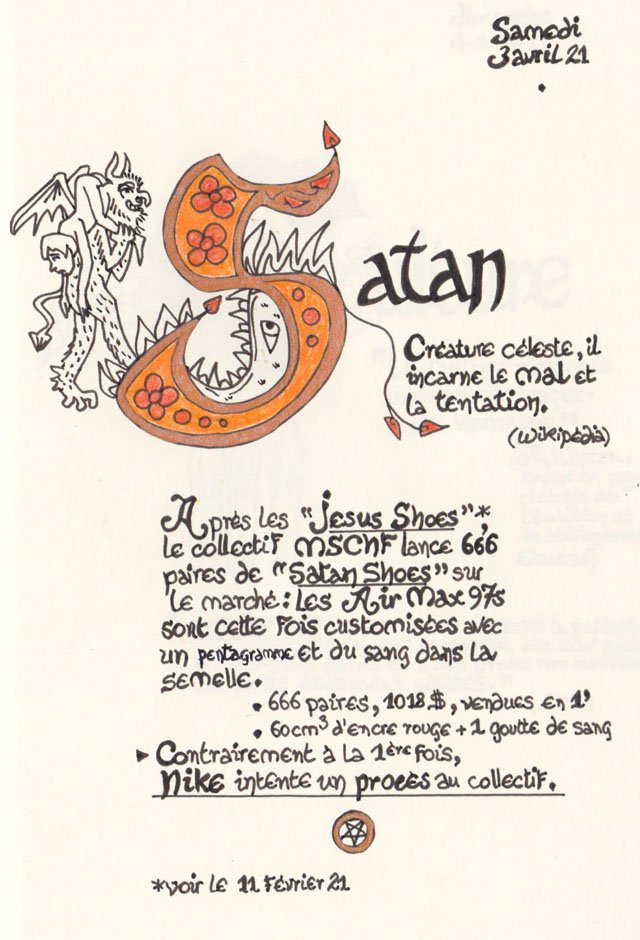 Samedi
3 avril 21
Satan
Créature céleste, il
incarne le mal et
la tentation.
(Wikipédia)
Après les "Jesus Shoes"*,
le collectif MSCHF lance 666
paires de "Satan Shoes" sur
le marché : les Air Max 97s
sont cette fois customisées avec
un pentagramme et du sang dans la
semelle.
• 666 paires, 1018 $, vendues en 1'
• 60cm³ d'encre rouge + 1 goutte de sang
► Contrairement à la 1ère fois,
Nike intente un procès au collectif.
*voir le 11 février 21